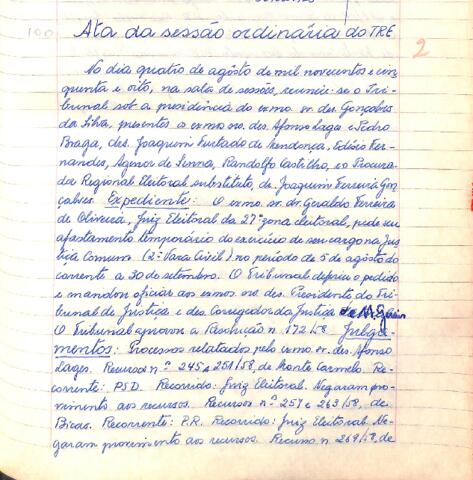 100 Ata da sessão ordinária do TRE
2
No dia quatro de agôsto de mil novecentos e cin
quenta e oito, na sala de sessões, reuniu-se o Tri-
bunal sob a presidência do exmo. sr. des. Gonçalves
da Silva, presentes os exmos. srs. des. Afonso Lages e Pedro
Braga, drs. Joaquim Furtado de Mendonça, Edésio Fer-
nandes, Agenor de Senna, Randolfo Castilho, e o Procura-
dor Regional Eleitoral substituto, dr. Joaquim Ferreira Gon
çalves. Expediente: O exmo. sr. dr. Geraldo Ferreira
de Oliveira, Juiz Eleitoral da 27ª zona eleitoral, pede seu
afastamento temporário do exercício de seu cargo na Jus
tiça Comum (2ª Vara Civil) no período de 5 de agôsto do
corrente a 30 de setembro. O Tribunal deferiu o pedido
e mandou oficiar aos exmos. srs. des. Presidente do Tri-
bunal de Justiça e des. Corregedor da Justiça de M. Gerais
O Tribunal aprova a Resolução n. 172/58. Julga-
mentos: Processos relatados pelo exmo. sr. des. Afonso
Lages. Recursos nºs 245 e 251/58, de Monte Carmelo. Re-
corrente: PSD. Recorrido: Juiz Eleitoral. Negaram pro-
vimento aos recursos. Recursos nºs 257 e 263/58, de
Bicas. Recorrente: P.R. Recorrido: Juiz Eleitoral. Ne-
garam provimento aos recursos. Recurso n. 269/58, de